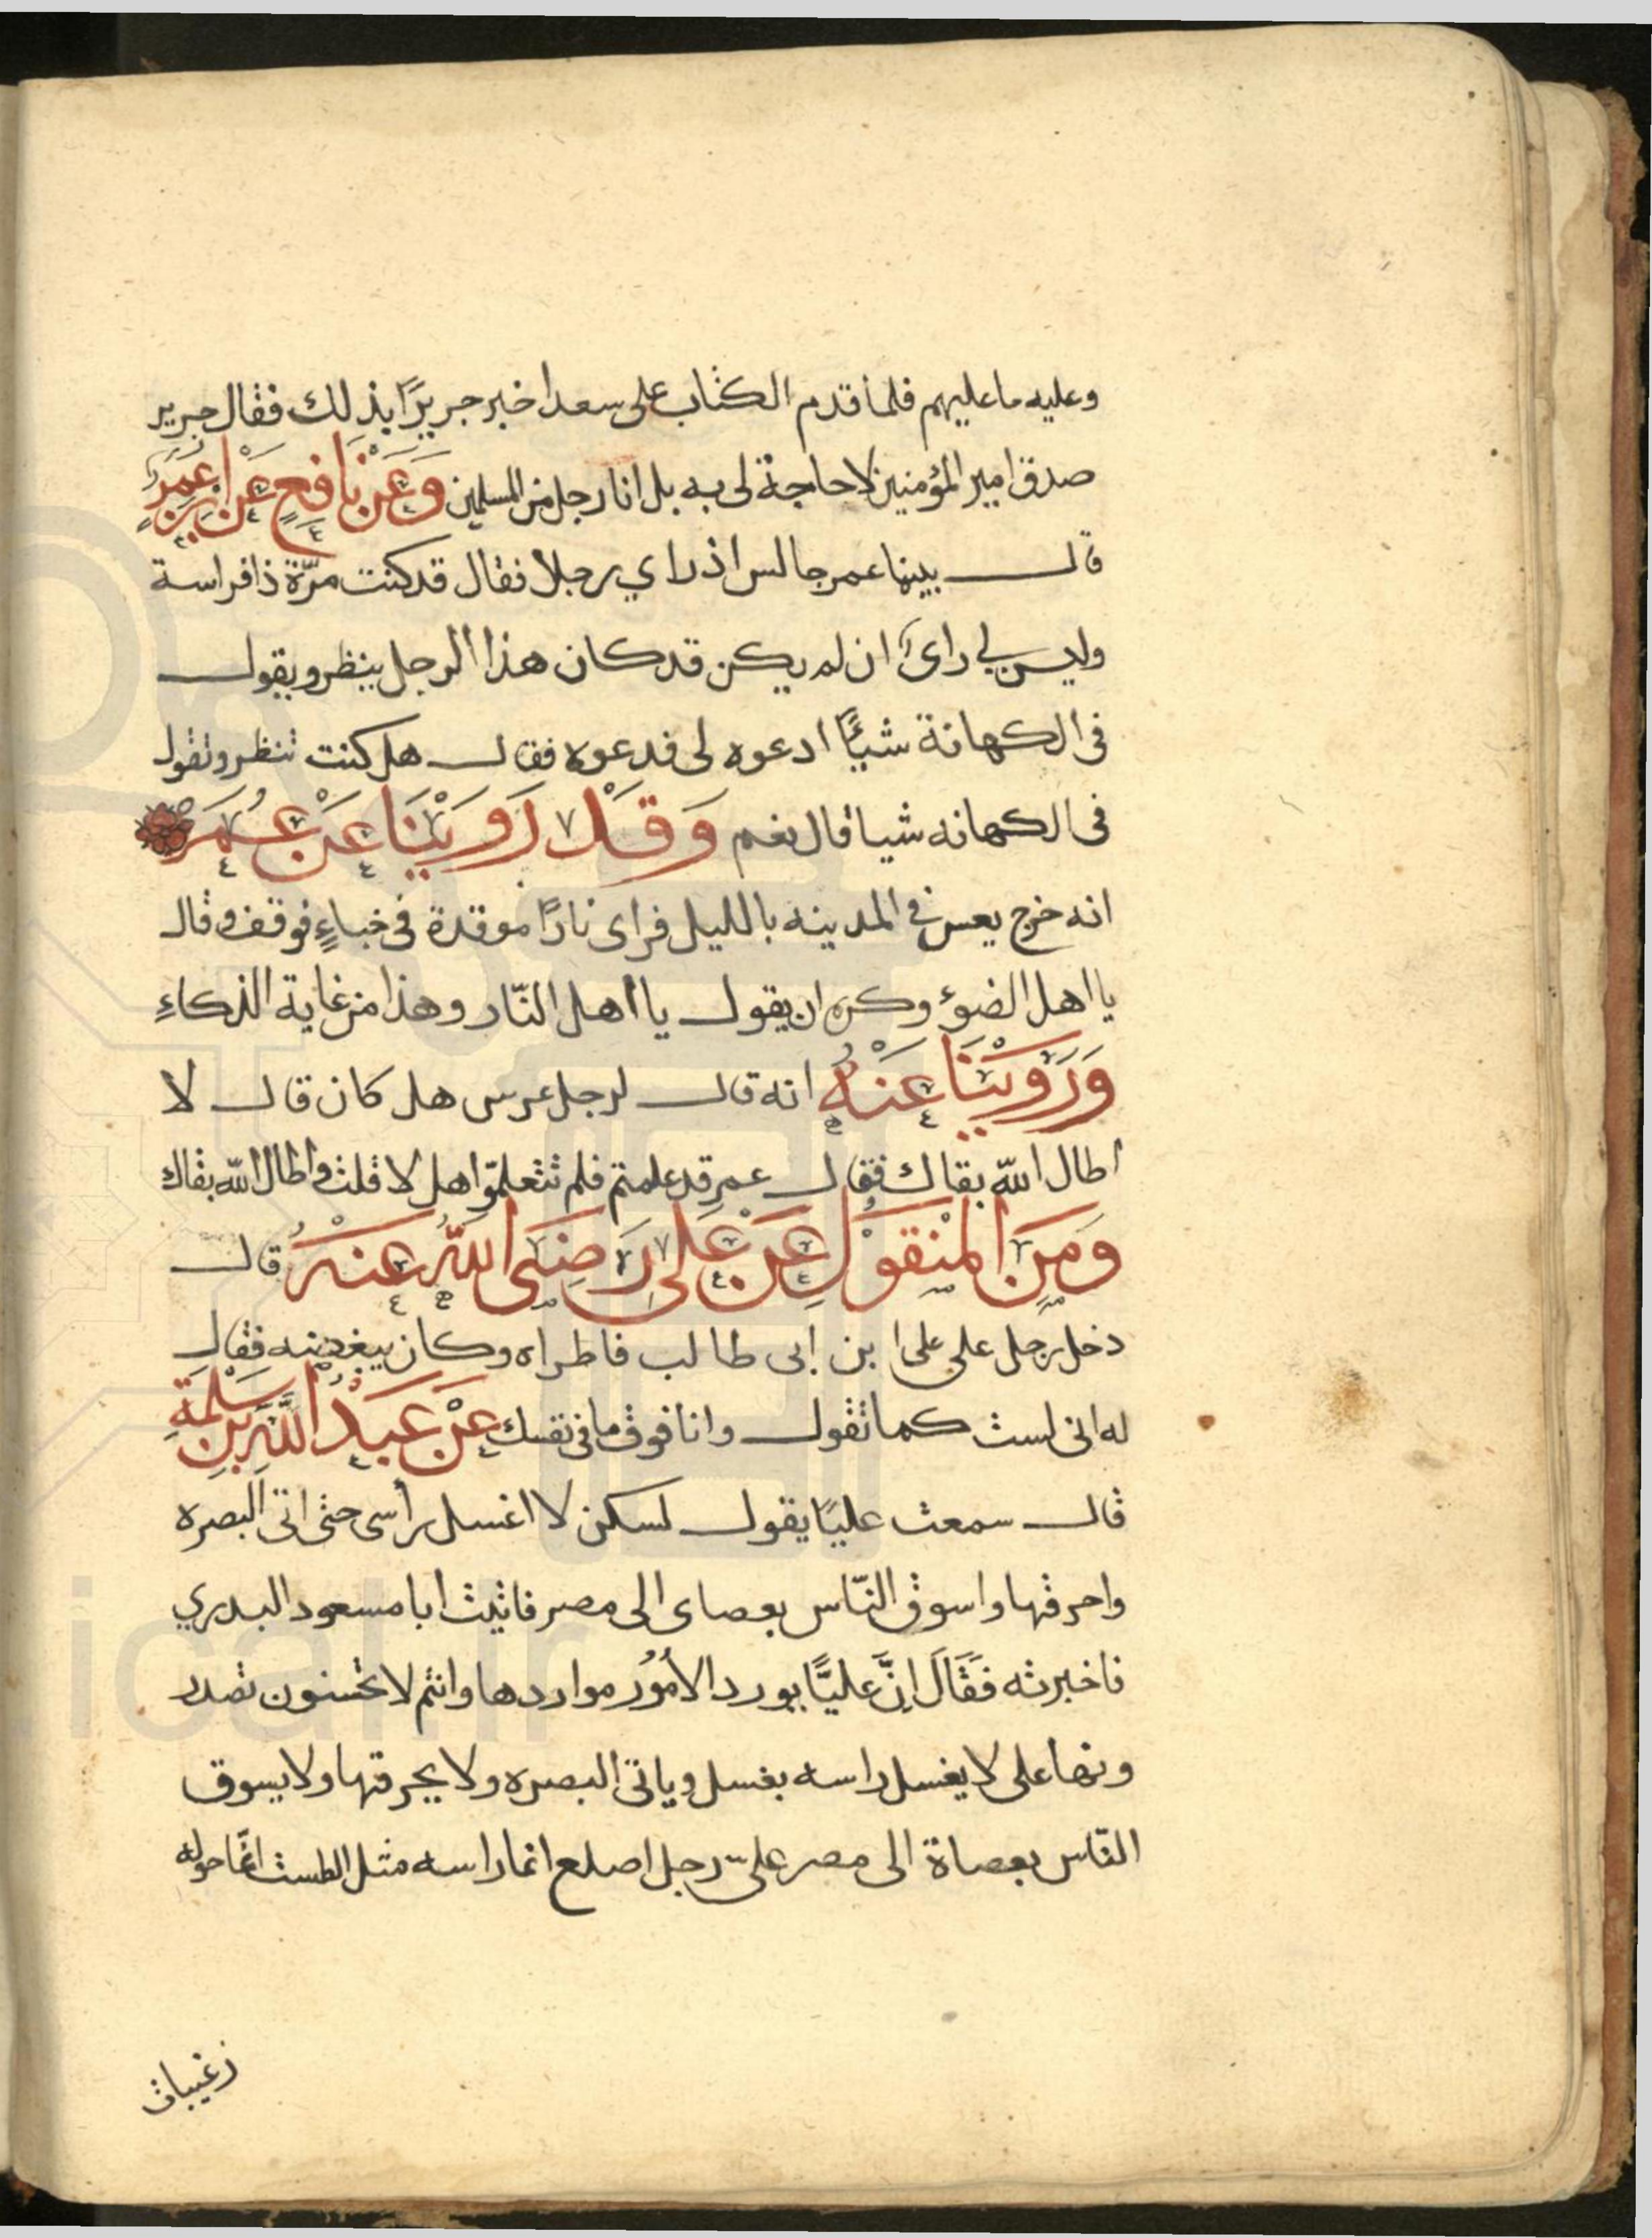 وعليه ما عليهم فلما قدم الكتاب على سعد اخبر جريرًا بذلك فقال جرير
صدق امير المؤمنين لا حاجة لى به بل انا رجل من المسلمين وَعَنْ نَافِعٍ عَنْ ابْنِ عُمَرَ
قال بينما عمر جالس اذ راي رجلا فقال قد كنت مرّة ذا فراسة
وليس لي راى ان لم يكن قد كان هذا الرجل ينظر ويقول
فى الكهانة شيئًا ادعوه لى فدعوه فقال هل كنت تنظر وتقول
فى الكهانه شيا قال نعم وَقَدْ رَوَيْنَا عَنْ عُمَرَ
انه خرج يعس في المدينه بالليل فراى نارًا موقدة فى خباءٍ فوقف وقال
يا اهل الضوء وكره ان يقول يا اهل النّار وهذا من غاية الذكاءِ
وَرَوَيْنَا عَنْهُ انه قال لرجل عرس هل كان قال لا
اطال الله بقاك فقال عمر قد علمتم فلم تتعلمّوا هل لا قلت واطال الله بقاك
وَمِنَ المنْقُولِ عَنْ عَلى رَضِىَ اللهُ عَنْهُ قال
دخل رجل على على ابن ابى طالب فاطراه وكان يبغضه فقال
له انى لست كما تقول وانا فوق ما فى نفسك عَنْ عَبْدُ اللَّهِ بْنِ سَلَمَةِ
قال سمعت عليًا يقول لسكن لا اغسل رأسى حتى اتى البصره
واحرقها واسوق النّاس بعصاى الى مصر فاتيت أبا مسعود البدري
فاخبرته فَقَالَ اِنَّ عليًّا يورد الأمُوُر مواردها وانتم لا تحسنون تصدر
ونها على لا يغسل راسه بغسل وياتى البصره ولا يحرقها ولا يسوق
النّاس بعصاة الى مصر على رجل اصلع انما راسه مثل الطست انّما حوله
زغيبات